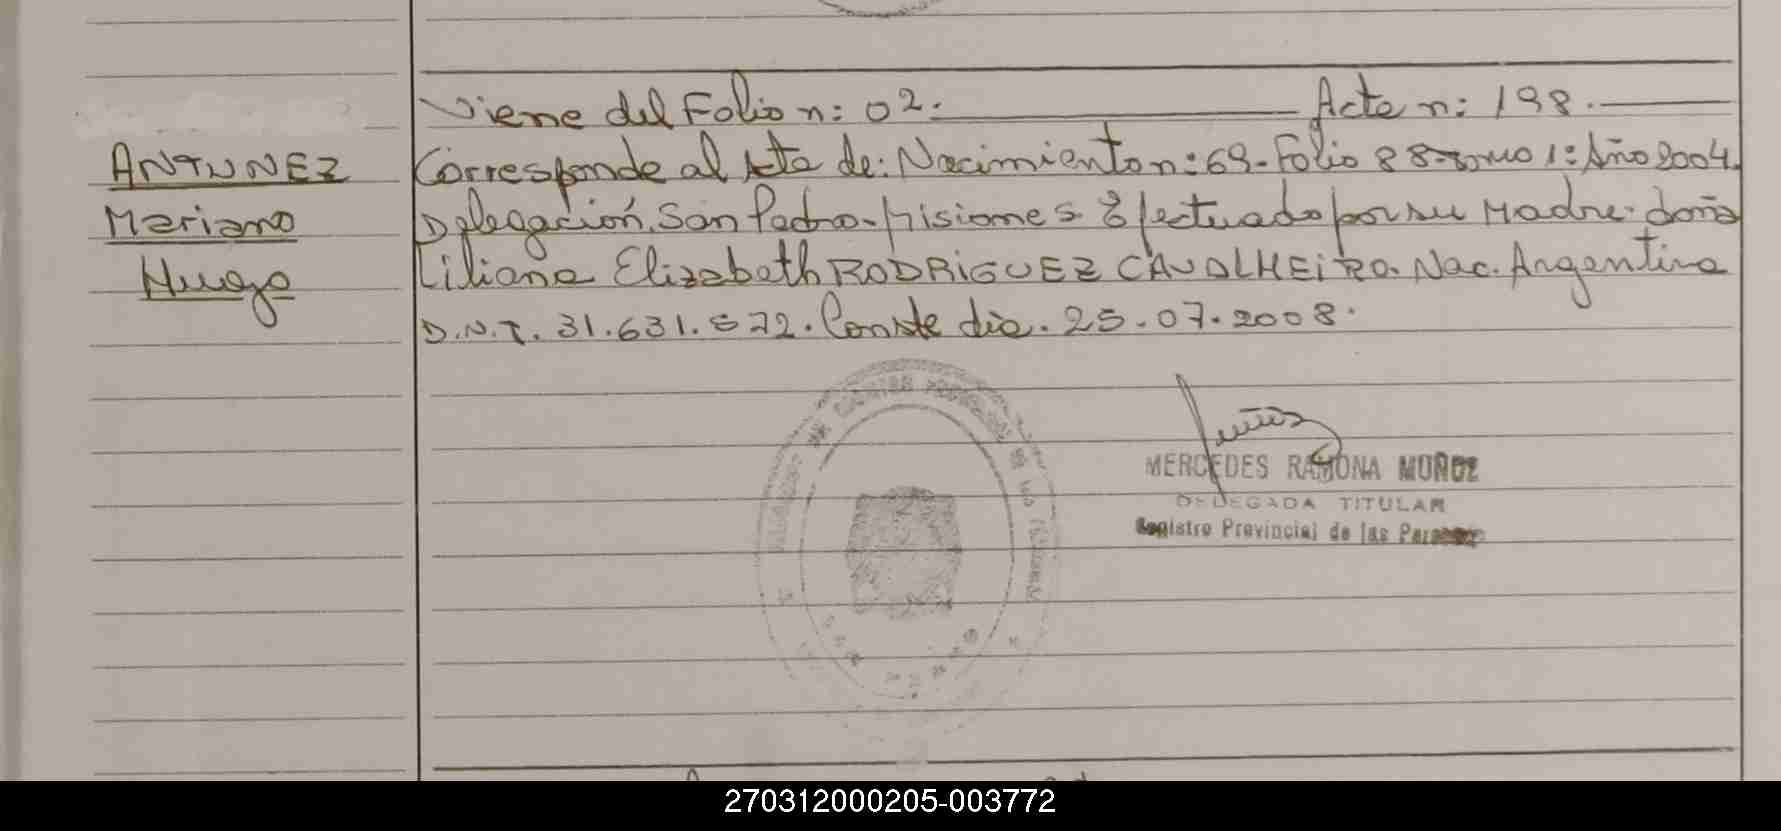 Viene del Folio n: 02. Acta n: 198.
ANTUNEZ
Mariano
Hugo
Corresponde al Acta de: Nacimiento n: 69- Folio 88- Tomo 1: Año 2004.
Delegación, San Pedro- Misiones Efectuado por su Madre. doña
Liliana Elizabeth RODRiGUEZ CAVALHEiRO. Nac. Argentina
D.N.I. 31.631.572. Conste dia. 25.07.2008.
MERCEDES RAMONA MUÑOZ
DELEGADA TITULAR
Registro Provincial de las Personas
270312000205-003772